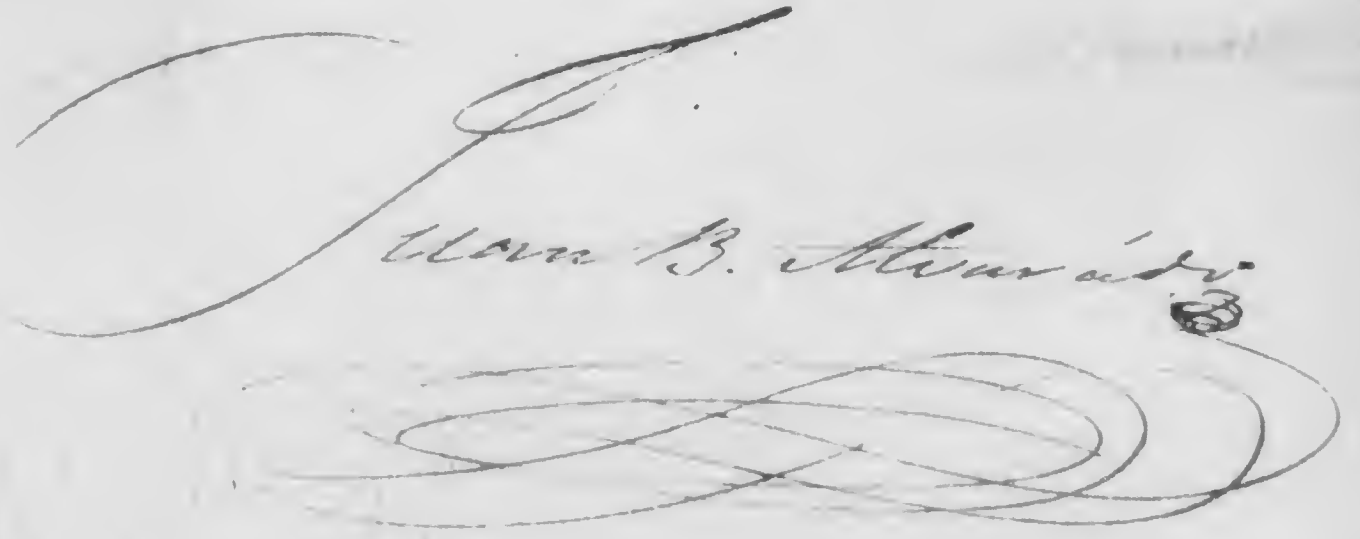 Juan B. Alvarádo